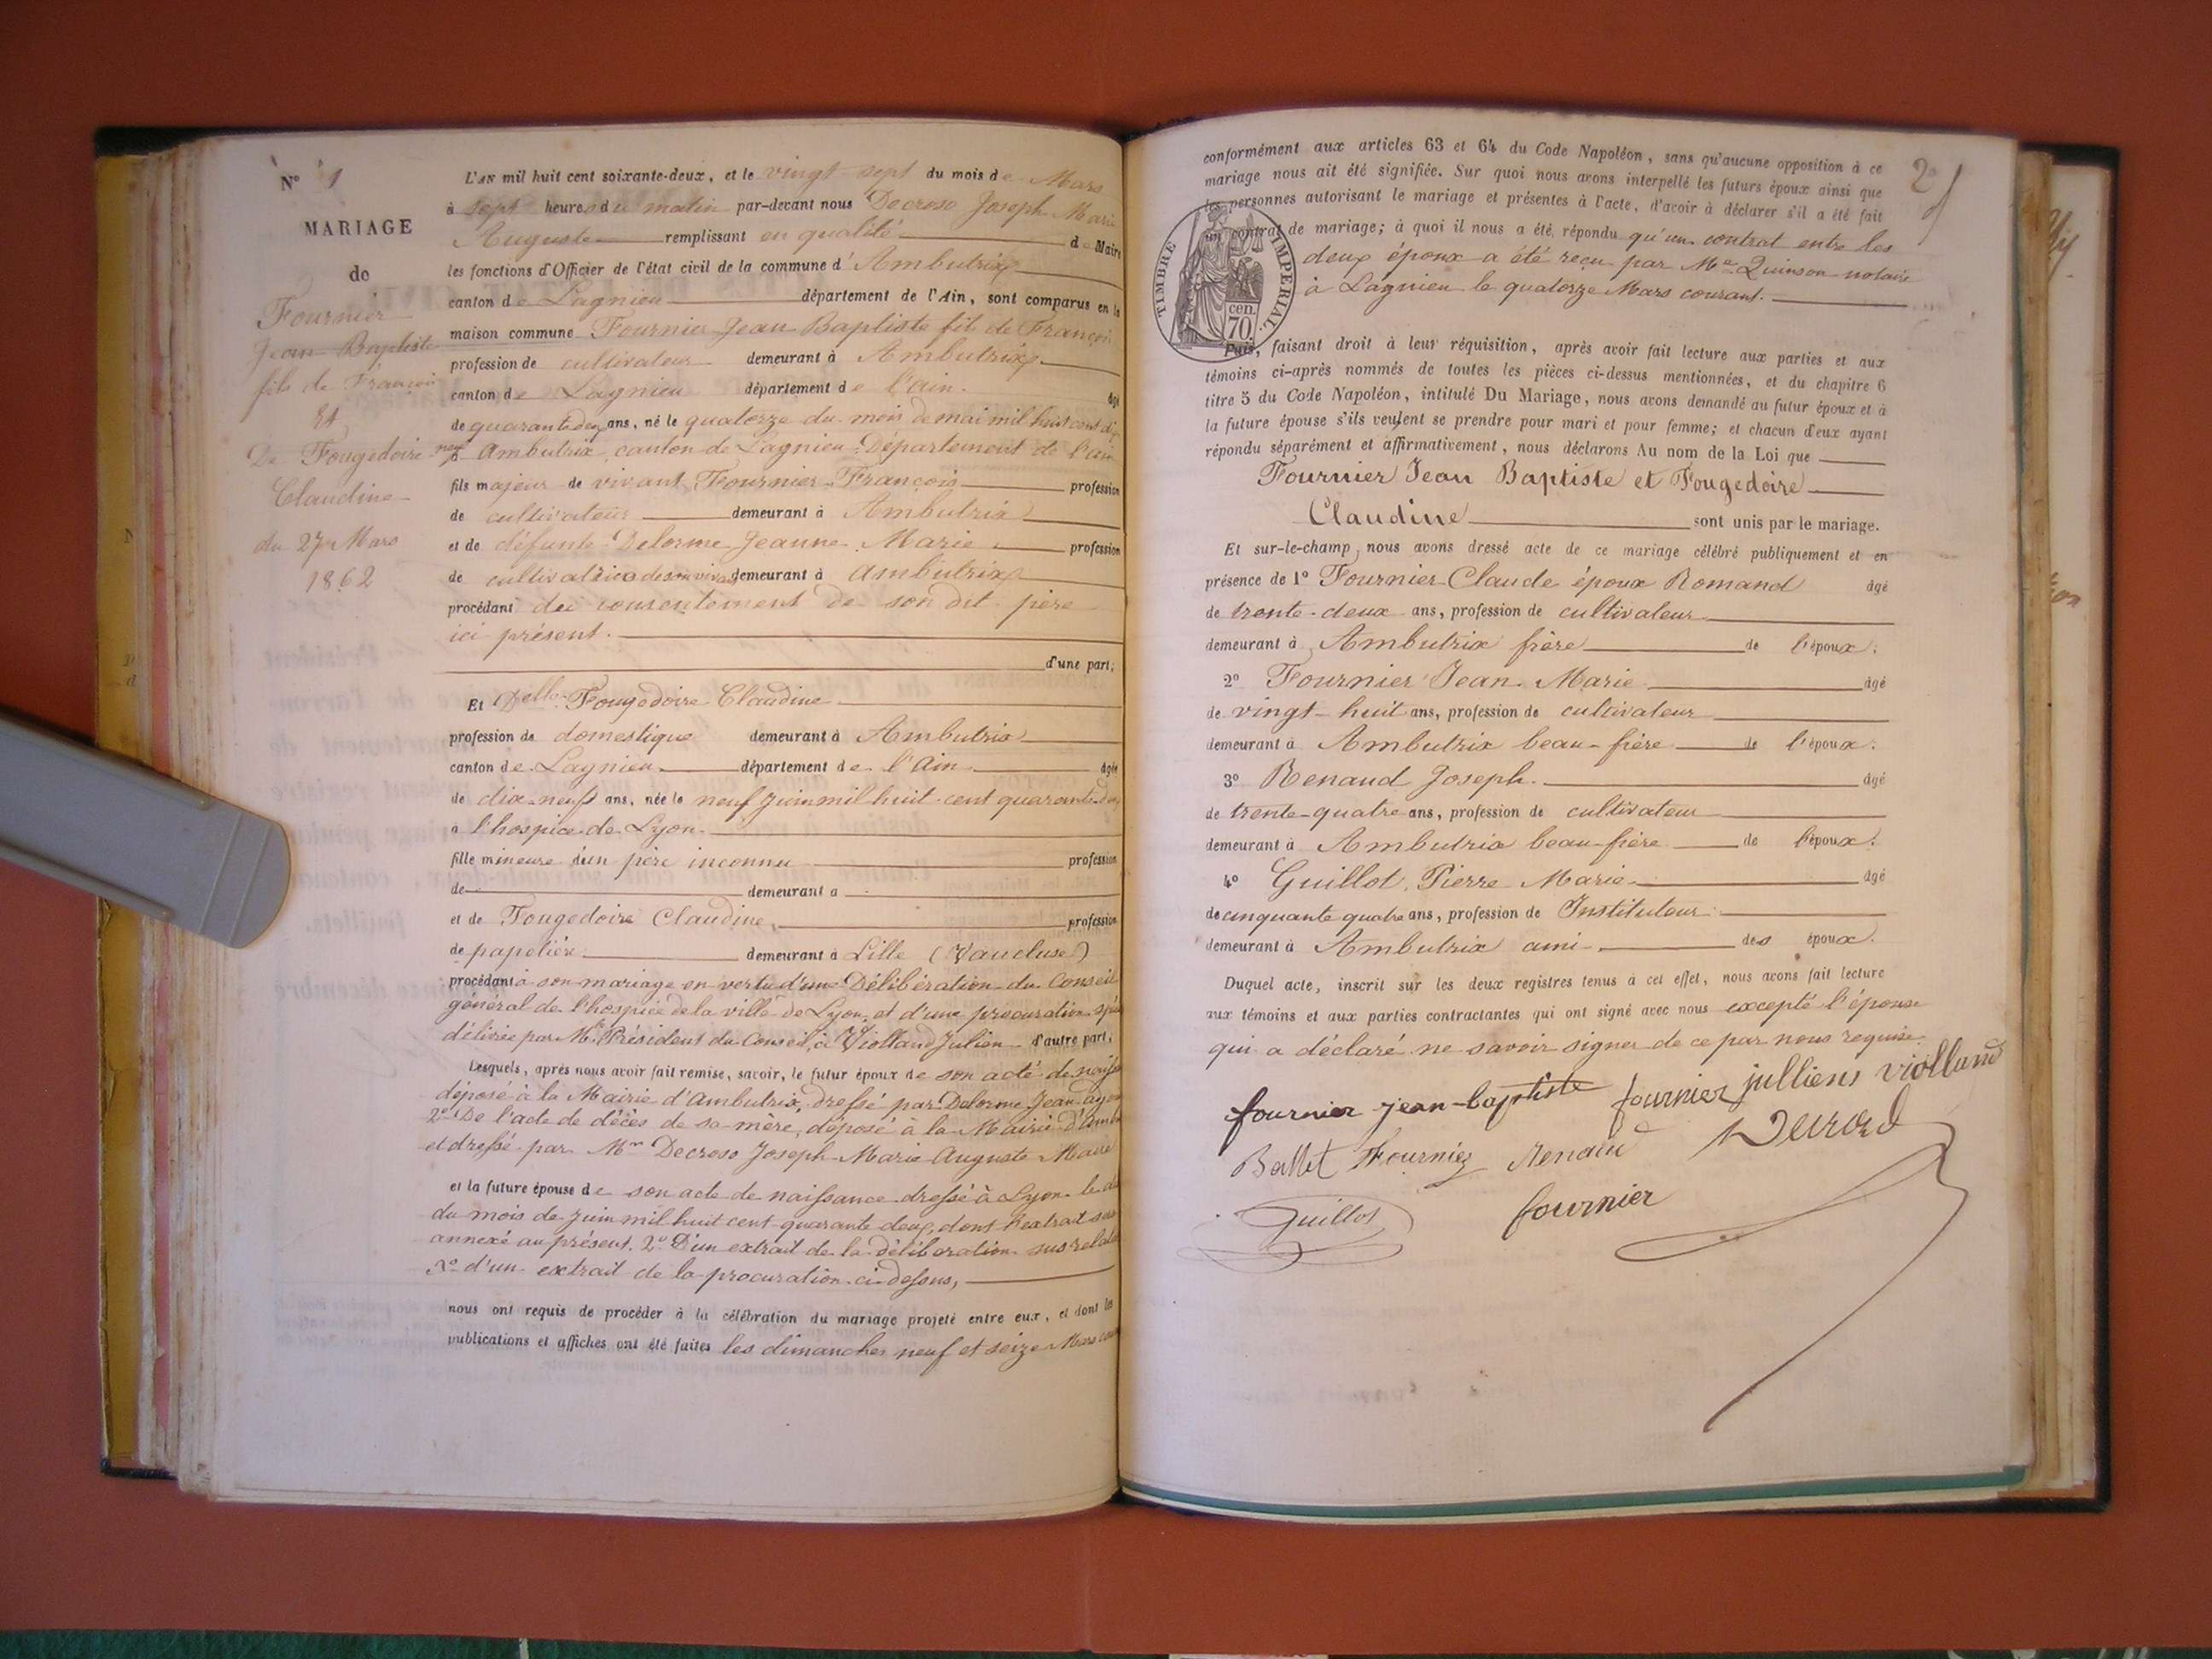 N° 1
MARIAGE
de
Fournier
Jean Baptiste
fils de François
Et
De Fougedoire
Claudine
du 27 Mars
1862
L'AN mil huit cent soixante-deux, et le vingt-sept du mois de Mars
à sept heures du matin par-devant nous Decroso Joseph Marie
Auguste remplissant en qualité de Maire
les fonctions d'Officier de l'état civil de la commune d'Ambutrix
canton de Lagnieu département de l'Ain, sont comparus en la
maison commune Fournier Jean Baptiste fils de François
profession de cultivateur demeurant à Ambutrix
canton de Lagnieu département de l'ain. âgé
de quarante deux ans, né le quatorze du mois de mai mil huit cent dix
neuf à Ambutrix, canton de Lagnieu Département de l'ain
fils majeur de vivant Fournier François profession
de cultivateur demeurant à Ambutrix
et de défunte Delorme Jeanne Marie profession
de cultivatrice de son vivant demeurant à Ambutrix
procédant du consentement de son dit père
ici présent.
d'une part;
Et Delle Fougedoire Claudine
profession de domestique demeurant à Ambutrix
canton de Lagnieu département de l'Ain âgée
de dix-neuf ans, née le neuf juin mil huit-cent quarante deux
à l'hospice de Lyon.
fille mineure d'un père inconnu profession
de demeurant à
et de Fougedoire Claudine, profession
de papetière demeurant à Lille (Vaucluse)
procédant à son mariage en vertu d'une Délibération du Conseil
général de l'hospice de la ville de Lyon, et d'une procuration
délivrée par Mr. Président du Conseil, à Violland Julien d'autre part;
Lesquels, après nous avoir fait remise, savoir, le futur époux de son acte de
déposé à la Mairie d'Ambutrix, dressé par Delorme Jean
2° De l'acte de décès de sa mère, déposé à la Mairie
et dressé par Mr Decroso Joseph Marie Auguste Maire
et la future épouse de son acte de naissance dressé à Lyon le
du mois de juin mil huit cent quarante deux, dont l'extrait
annexé au présent. 2° D'un extrait de la délibération
3° d'un extrait de la procuration ci-dessus,
nous ont requis de procéder à la célébration du mariage projeté entre eux, et dont les
publications et affiches ont été faites les dimanches neuf et seize Mars
2
conformément aux articles 63 et 64 du Code Napoléon, sans qu'aucune opposition à ce
mariage nous ait été signifiée. Sur quoi nous avons interpellé les futurs époux ainsi que
les personnes autorisant le mariage et présentes à l'acte, d'avoir à déclarer s'il a été fait
un contrat de mariage; à quoi il nous a été répondu qu'un contrat entre les
deux époux a été reçu par Me Quinson notaire
à Lagnieu le quatorze Mars courant.
TIMBRE IMPERIAL
70 cen.
Puis, faisant droit à leur réquisition, après avoir fait lecture aux parties et aux
témoins ci-après nommés de toutes les pièces ci-dessus mentionnées, et du chapitre 6
titre 5 du Code Napoléon, intitulé Du Mariage, nous avons demandé au futur époux et à
la future épouse s'ils veulent se prendre pour mari et pour femme; et chacun d'eux ayant
répondu séparément et affirmativement, nous déclarons Au nom de la Loi que
Fournier Jean Baptiste et Fougedoire
Claudine sont unis par le mariage.
Et sur-le-champ, nous avons dressé acte de ce mariage célébré publiquement et en
présence de 1° Fournier Claude époux Romand âgé
de trente-deux ans, profession de cultivateur
demeurant à Ambutrix frère de l'époux.
2° Fournier Jean Marie âgé
de vingt-huit ans, profession de cultivateur
demeurant à Ambutrix beau-frère de l'époux.
3° Renaud Joseph. âgé
de trente-quatre ans, profession de cultivateur
demeurant à Ambutrix beau-frère de l'époux.
4° Guillot, Pierre Marie âgé
de cinquante quatre ans, profession de Instituteur
demeurant à Ambutrix ami des époux.
Duquel acte, inscrit sur les deux registres tenus à cet effet, nous avons fait lecture
aux témoins et aux parties contractantes qui ont signé avec nous excepté l'épouse
qui a déclaré ne savoir signer de ce par nous requise.
fournier jean-baptiste fournier julliens violland
Ballet Fournier Renaud Decroso
Guillot fournier